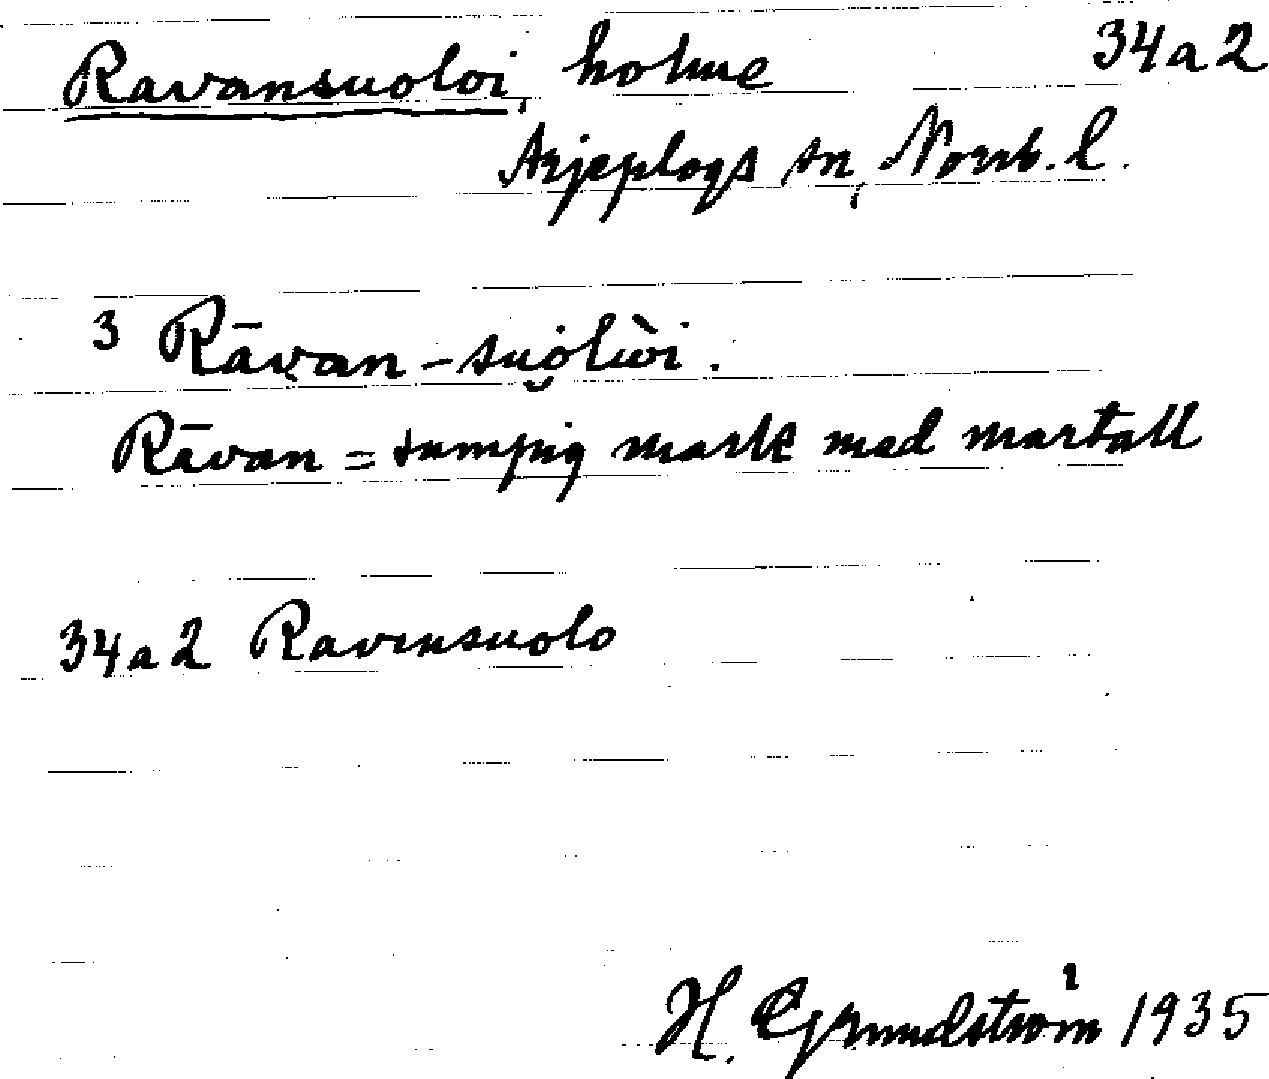 Ravansuoloi, holme 34a2
Arjeplogs sn, Norrb. l.
3 Rāvan-suo̭lòi.
Rāvan = sumpig mark med martall
34a2 Ravensuolo
H. Grundström 1935